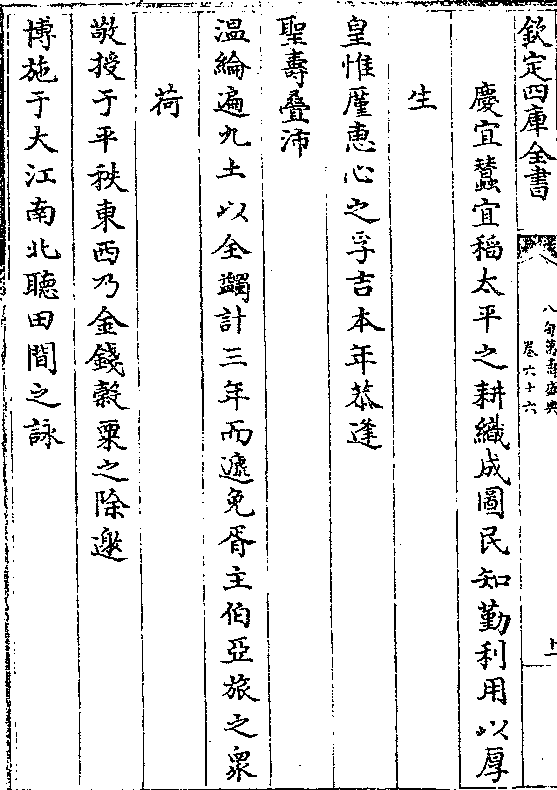 欽定四庫全書
八旬萬壽盛典
卷六十六
十一
慶宜蠶宜稻太平之耕織成圖民知勤利用以厚
生
皇惟廑惠心之孚吉本年恭逢
聖壽疊沛
溫綸遍九土以全蠲計三年而遞免胥主伯亞旅之衆
荷
敬授于平秩東西乃金錢糓粟之除邀
博施于大江南北聽田間之詠